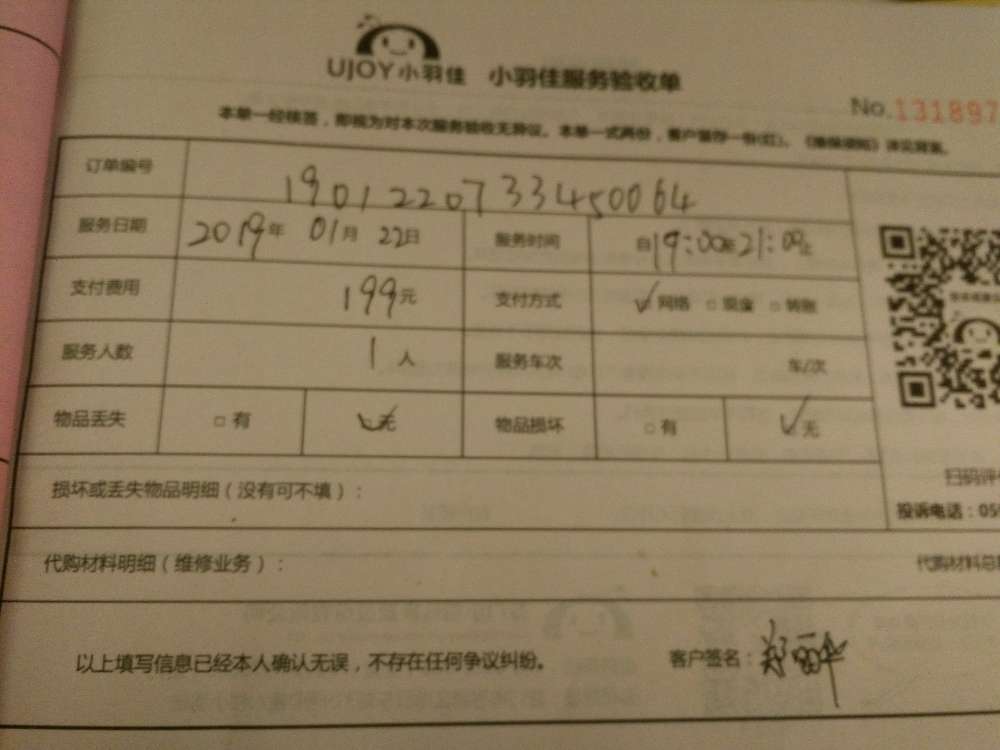 UJOY小羽佳 小羽佳服务验收单
No.131897
本单一经核签，即视为对本次服务验收无异议。本单一式两份，客户留存一份(红)。《维保须知》详见背面。
订单编号 1901220733450064
服务日期 2019年 01月 22日 服务时间 自19:00至21:00止
支付费用 199元 支付方式 ☑网络 □现金 □转账
服务人数 1人 服务车次 车/次
物品丢失 □有 ☑无 物品损坏 □有 ☑无
损坏或丢失物品明细（没有可不填）：
扫码评
投诉电话：05
代购材料明细（维修业务）： 代购材料总
以上填写信息已经本人确认无误，不存在任何争议纠纷。 客户签名：